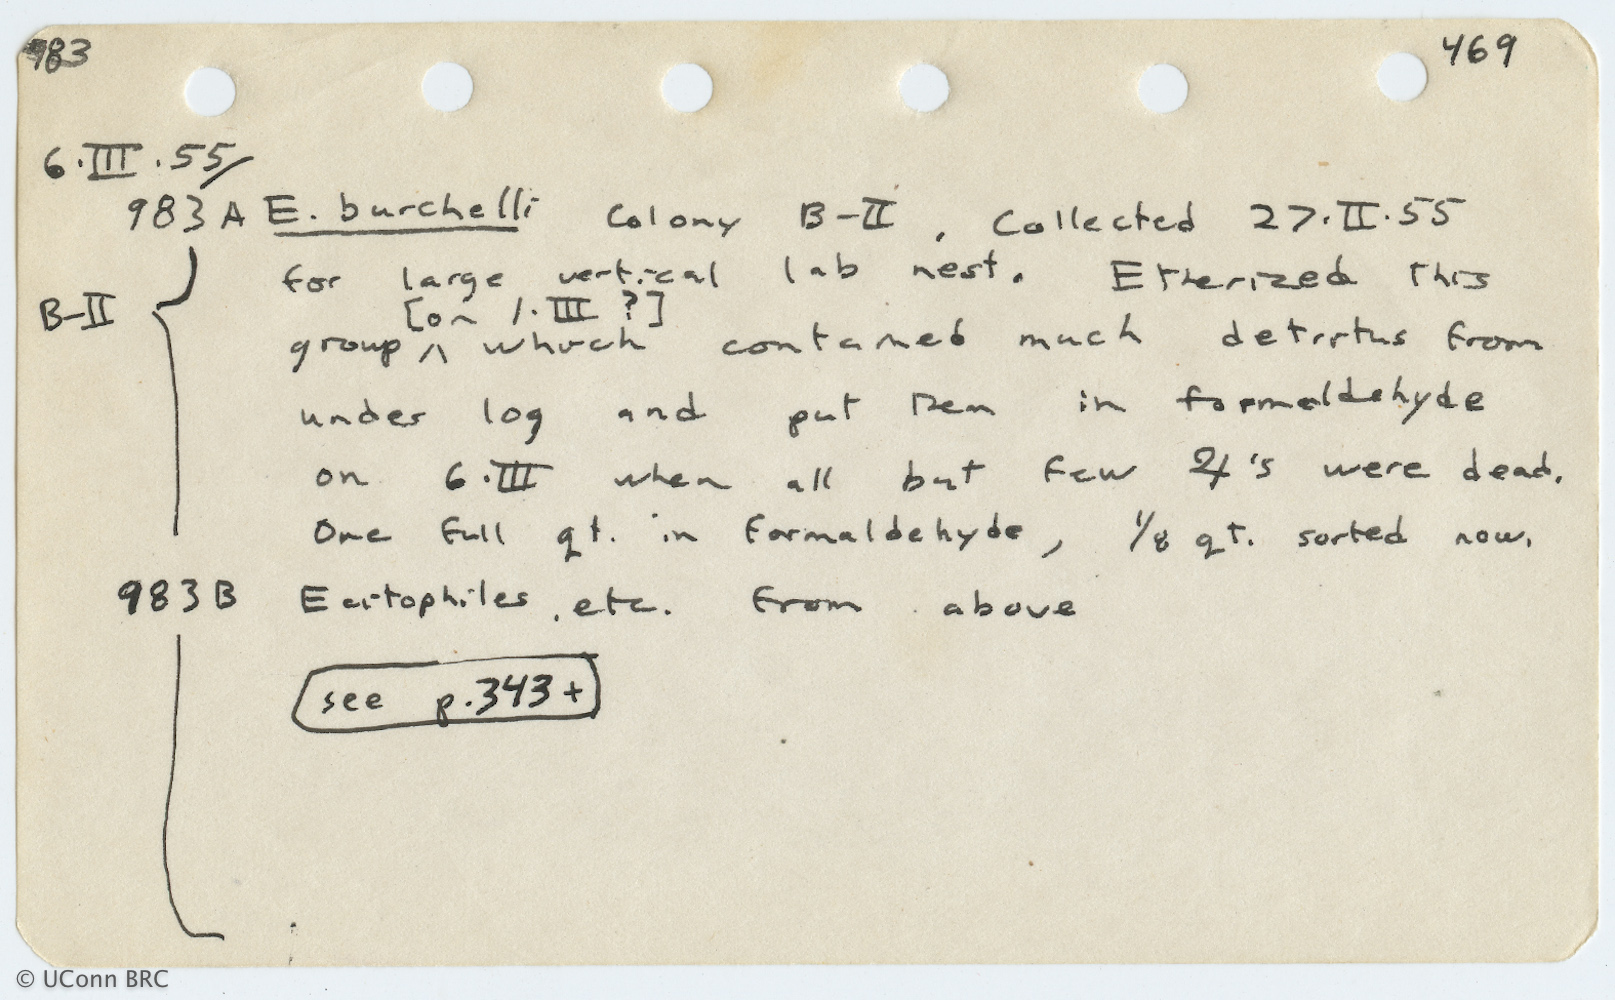 983
469
6.III.55
983 A E. burchelli Colony B-II, Collected 27.II.55
for large vertical lab nest. Etherized this
B-II
[on 1.III ?]
group ^ which contained much detritus from
under log and put them in formaldehyde
on 6.III when all but few ☿'s were dead.
One full qt. in formaldehyde, 1/8 qt. sorted now.
983 B Ecitophiles, etc. from above
see p.343+
© UConn BRC